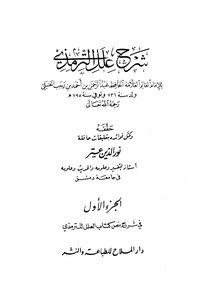 شرح علل الترمذي
للإمام العالم العلامة الحافظ عبد الرحمن بن أحمد بن رجب الحنبلي
ولد سنة ٧٣٦ وتوفي سنة ٧٩٥
رحمه الله تعالى
حققه
وكمل فوائده بتعليقات حافلة
نور الدين عتر
أستاذ التفسير وعلومه والحديث وعلومه
في جامعة دمشق
الجزء الأول
في شرح نص كتاب العلل للترمذي
دار الملاح للطباعة والنشر